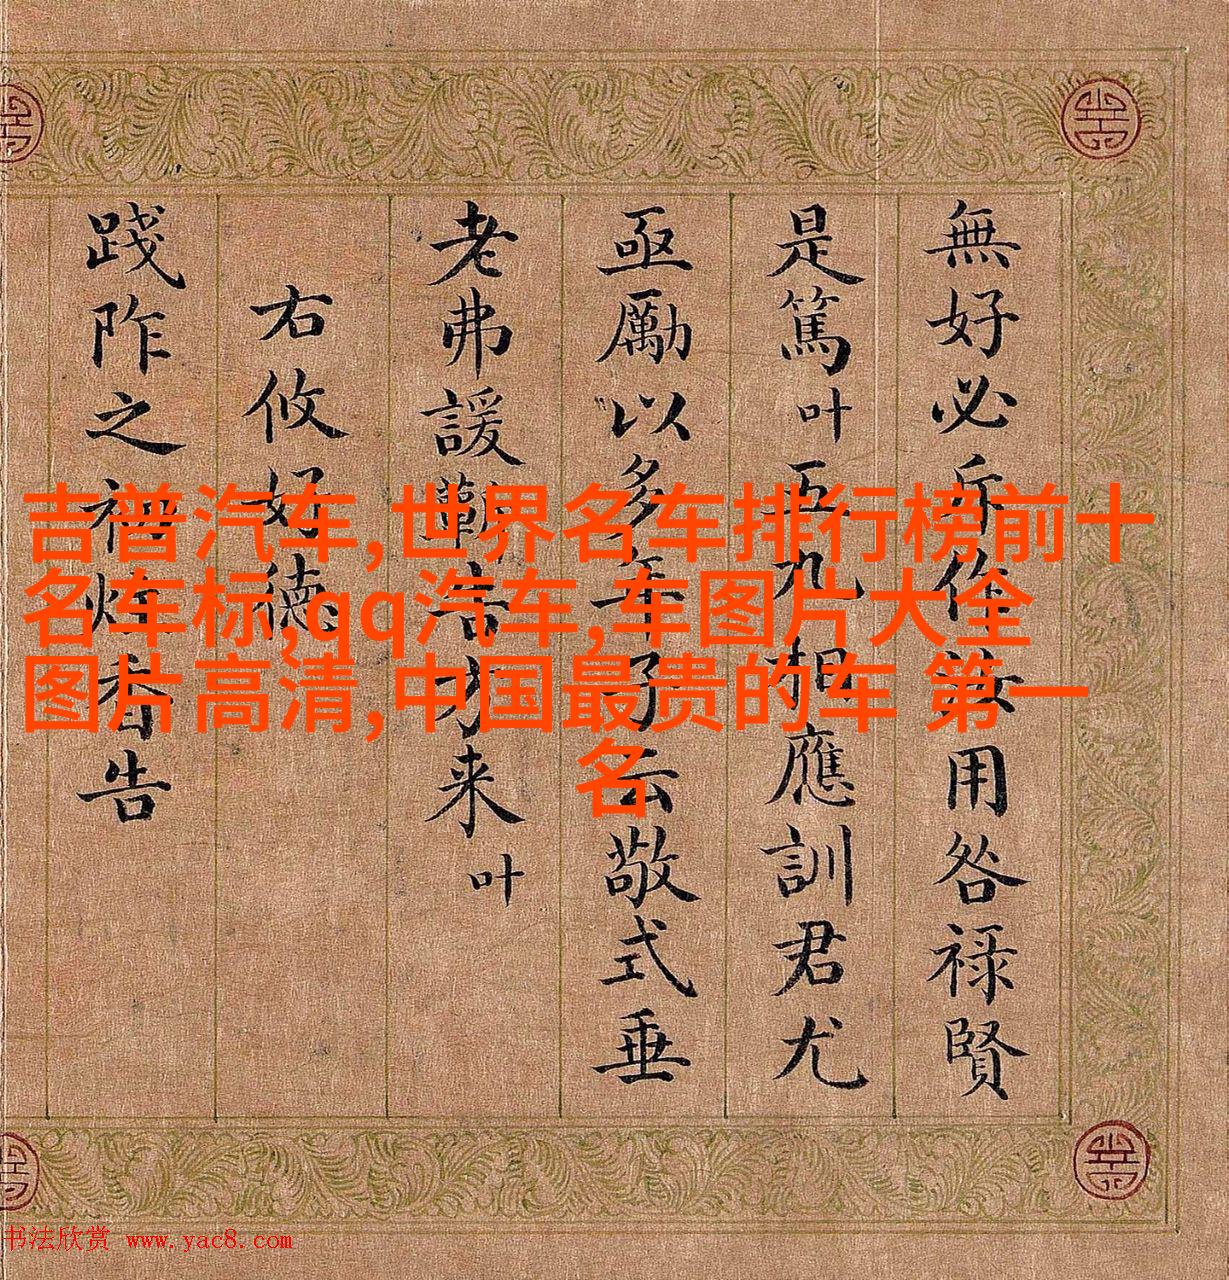 無好必斥作汝用咎祿賢
是篤叶五九相應訓君尤
亟勵以多年予云敬式垂
老弗諼来叶
右攸好德
踐阼之初告
吉普汽车,世界名车排行榜前十
名车标,qq汽车,车图片大全
图片高清,中国最贵的车 第一
名
书法欣赏 www.yac8.com